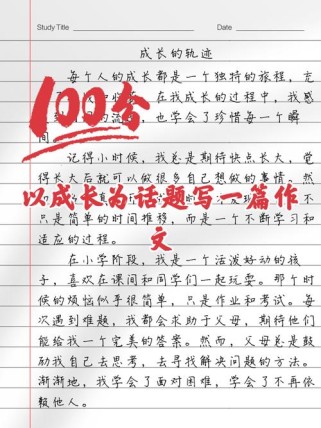 Study Title
Date
成长的轨迹
每个人的成长都是一个独特的旅程，充
在我成长的过程中，我感
的流逝，也学会了珍惜每一个瞬
间。
100分
记得小时候，我总是期待快点长大，觉
得长大后就可以做很多自己想做的事情。然
以成长为话题写一篇作文
只是简单的时间推移，而是一个不断学习和
适应的过程。
在小学阶段，我是一个活泼好动的孩
子，喜欢在课间和同学们一起玩耍。那个时
候的烦恼似乎很简单，只是作业和考试。每
次遇到难题，我都会求助于父母，期待他们
能给我一个完美的答案。然而，父母总是鼓
励我自己去思考，去寻找解决问题的方法。
渐渐地，我学会了面对困难，学会了不再依
赖他人。